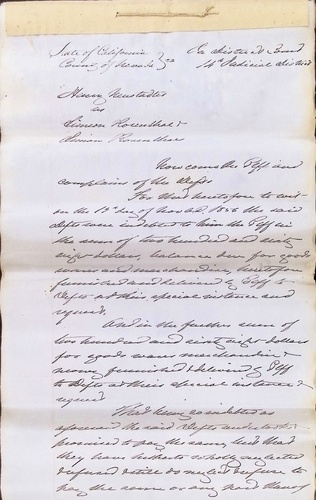 State of California } ss In District Court
County of Nevada 14th Judicial District
Henry Neustadter
vs
Simeon Rosenthal &
Simon Rosenthal
Now comes the Plff and
complains of the Defts
For that heretofore to wit
on the 13th day of 1856 the said
Defts were indebted to him the Plff in
the sum of two hundred and sixty
eight dollars, balance due for goods
wares and merchandise, heretofore
furnished and delivered by Plff to
Defts at their special instance and
request.
And in the further sum of
two hundred and sixty eight dollars
for goods wares merchandise &
money furnished & delivered by Plff
to Defts at their special instance &
request
That being so indebted as
aforesaid the said Defts undertook &
promised to pay the same, but that
they have hitherto wholly neglected
& refused & still do neglect & refuse to
pay the same or any part thereof